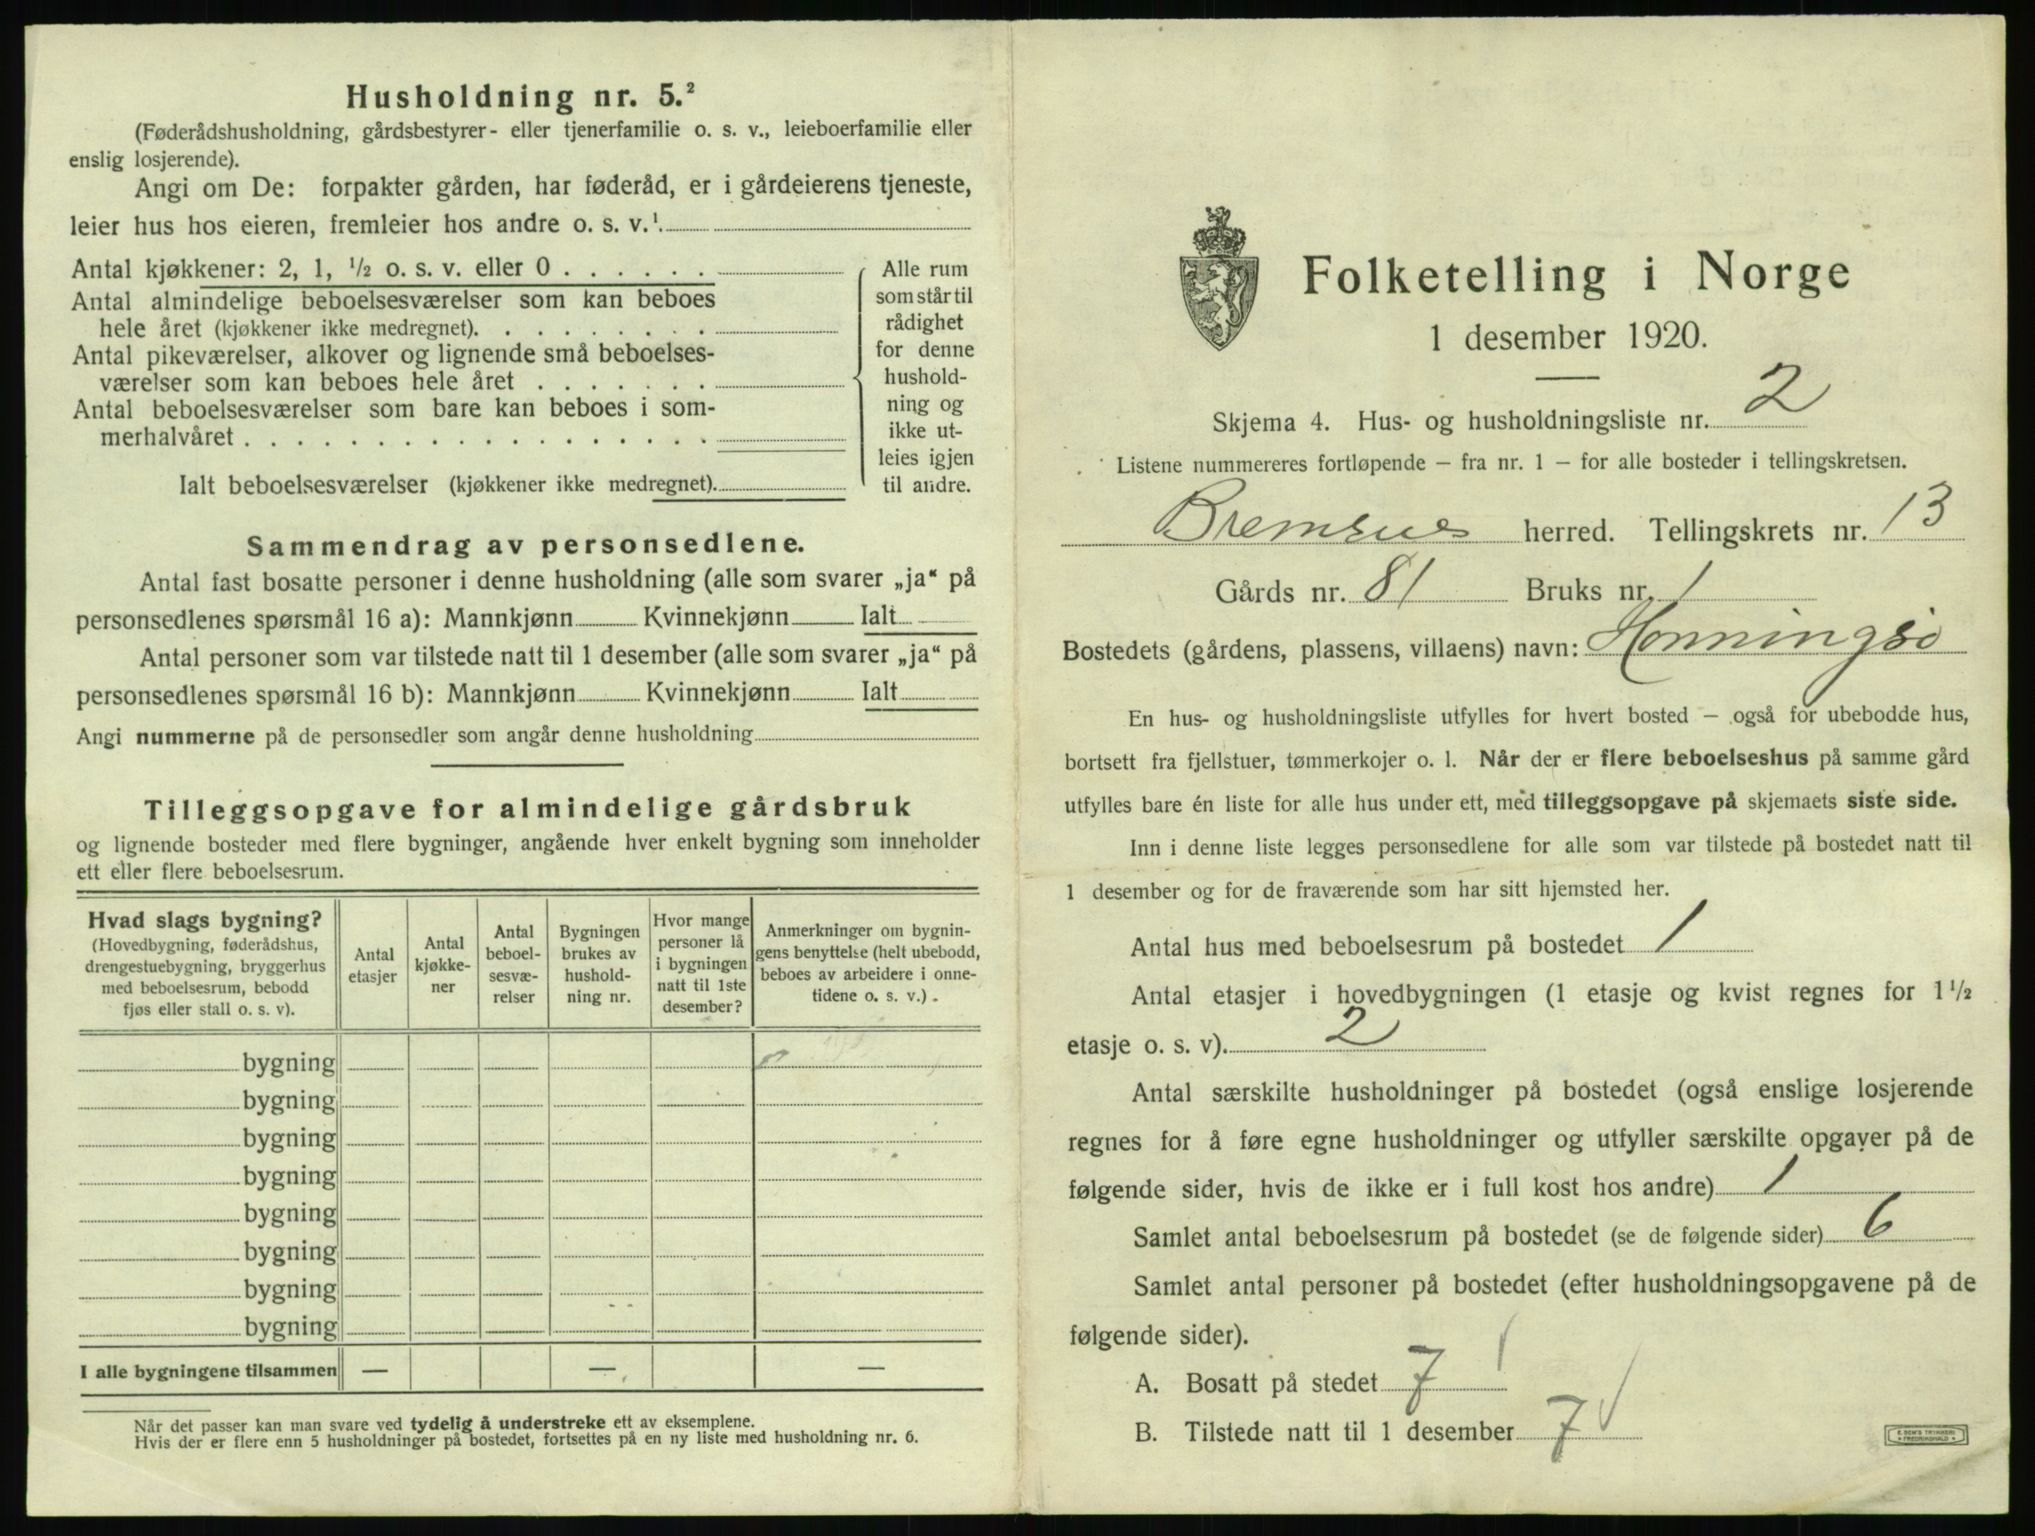 Husholdning nr. 5.²
(Føderådshusholdning, gårdsbestyrer- eller tjenerfamilie o. s. v., leieboerfamilie eller
enslig losjerende).
Angi om De: forpakter gården, har føderåd, er i gårdeierens tjeneste,
leier hus hos eieren, fremleier hos andre o. s. v.¹
Antal kjøkkener: 2, 1, ½ o. s. v. eller 0 . . . . . .
Antal almindelige beboelsesværelser som kan beboes
hele året (kjøkkener ikke medregnet). . . . . . . . .
Antal pikeværelser, alkover og lignende små beboelses-
værelser som kan beboes hele året . . . . . . .
Antal beboelsesværelser som bare kan beboes i som-
merhalvåret . . . . . . . . . . . . . . . . . .
Ialt beboelsesværelser (kjøkkener ikke medregnet).
Alle rum
som står til
rådighet
for denne
hushold-
ning og
ikke ut-
leies igjen
til andre.
Sammendrag av personsedlene.
Antal fast bosatte personer i denne husholdning (alle som svarer „ja“ på
personsedlenes spørsmål 16 a): Mannkjønn Kvinnekjønn Ialt
Antal personer som var tilstede natt til 1 desember (alle som svarer „ja“ på
personsedlenes spørsmål 16 b): Mannkjønn Kvinnekjønn Ialt
Angi nummerne på de personsedler som angår denne husholdning
Tilleggsopgave for almindelige gårdsbruk
og lignende bosteder med flere bygninger, angående hver enkelt bygning som inneholder
ett eller flere beboelsesrum.
Hvad slags bygning?
(Hovedbygning, føderådshus,
drengestuebygning, bryggerhus
med beboelsesrum, bebodd
fjøs eller stall o. s. v).
Antal
etasjer
Antal
kjøkke-
ner
Antal
beboel-
sesvæ-
relser
Bygningen
brukes av
hushold-
ning nr.
Hvor mange
personer lå
i bygningen
natt til 1ste
desember?
Anmerkninger om bygnin-
gens benyttelse (helt ubebodd,
beboes av arbeidere i onne-
tidene o. s. v.).
bygning
bygning
bygning
bygning
bygning
bygning
bygning
bygning
I alle bygningene tilsammen — — —
Når det passer kan man svare ved tydelig å understreke ett av eksemplene.
Hvis der er flere enn 5 husholdninger på bostedet, fortsettes på en ny liste med husholdning nr. 6.
Folketelling i Norge
1 desember 1920.
Skjema 4. Hus- og husholdningsliste nr. 2
Listene nummereres fortløpende — fra nr. 1 — for alle bosteder i tellingskretsen.
Bremsnes herred. Tellingskrets nr. 13
Gårds nr. 81 Bruks nr. 1
Bostedets (gårdens, plassens, villaens) navn: Honningsö
En hus- og husholdningsliste utfylles for hvert bosted — også for ubebodde hus,
bortsett fra fjellstuer, tømmerkojer o. l. Når der er flere beboelseshus på samme gård
utfylles bare én liste for alle hus under ett, med tilleggsopgave på skjemaets siste side.
Inn i denne liste legges personsedlene for alle som var tilstede på bostedet natt til
1 desember og for de fraværende som har sitt hjemsted her.
Antal hus med beboelsesrum på bostedet 1
Antal etasjer i hovedbygningen (1 etasje og kvist regnes for 1½
etasje o. s. v). 2
Antal særskilte husholdninger på bostedet (også enslige losjerende
regnes for å føre egne husholdninger og utfyller særskilte opgaver på de
følgende sider, hvis de ikke er i full kost hos andre) 1
Samlet antal beboelsesrum på bostedet (se de følgende sider) 6
Samlet antal personer på bostedet (efter husholdningsopgavene på de
følgende sider).
A. Bosatt på stedet 7
B. Tilstede natt til 1 desember 7
E. SEM'S TRYKKERI
FREDRIKSHALD